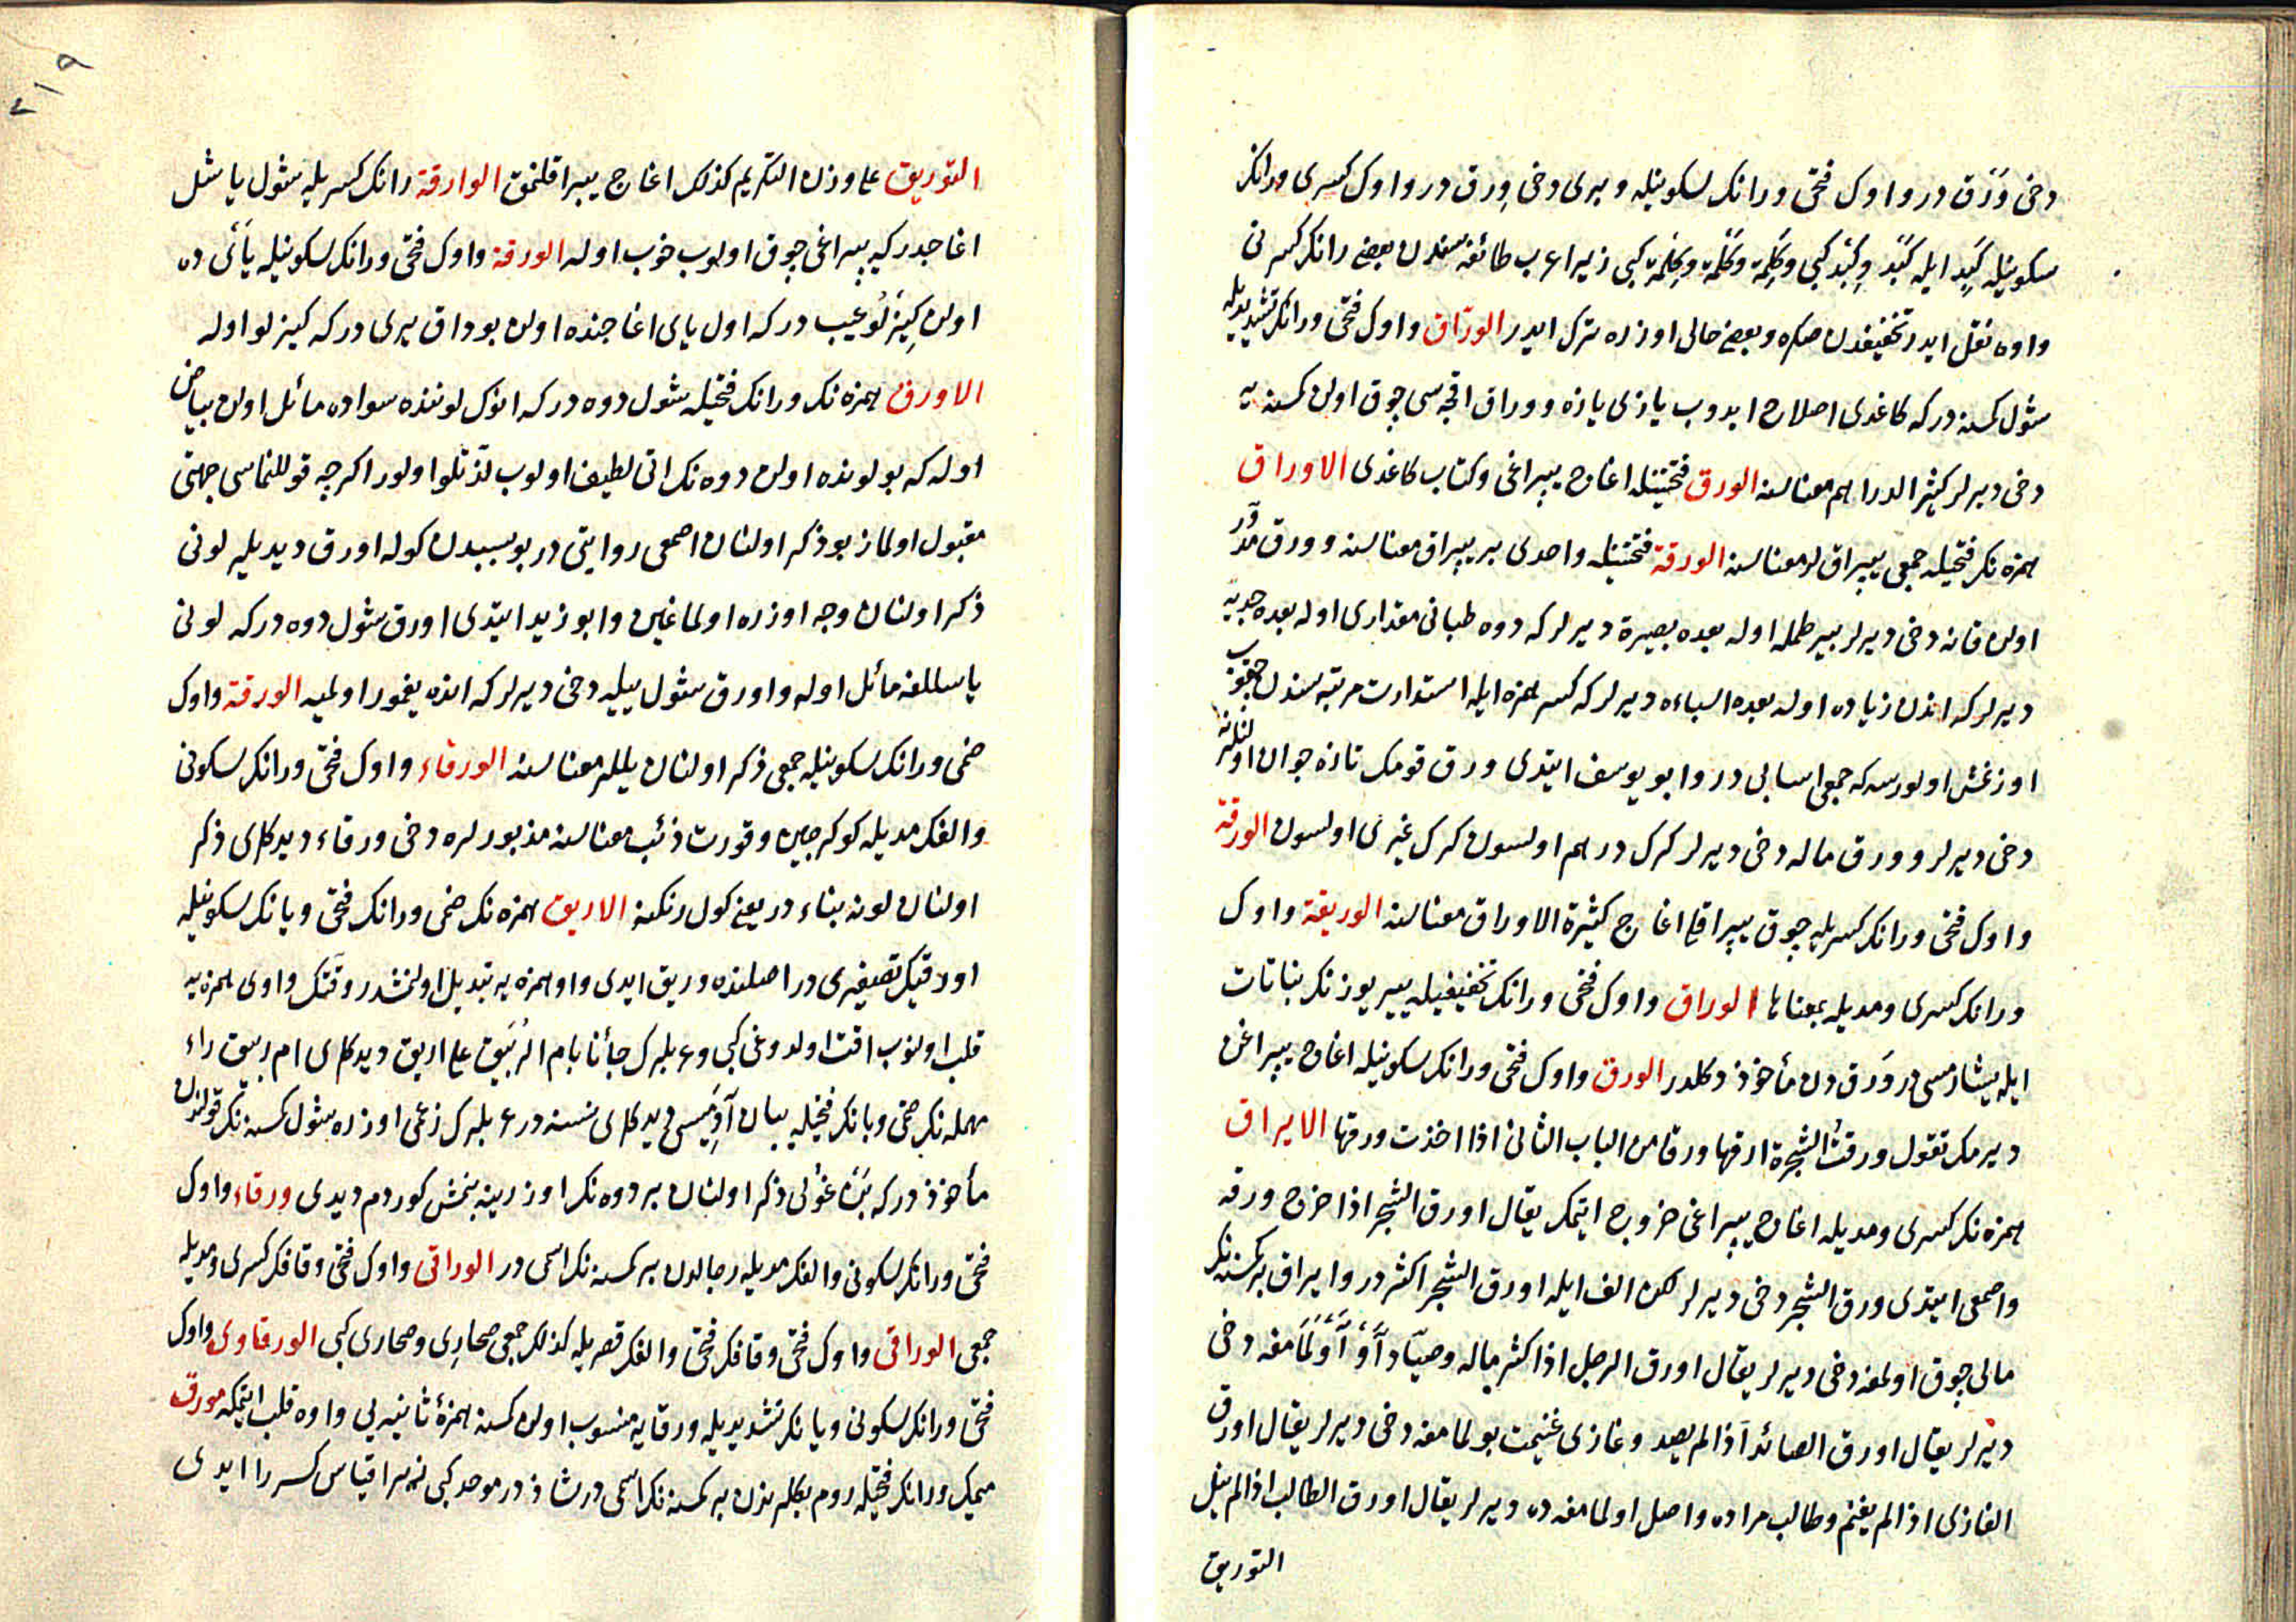 دخی وَرَق در واوك فتحی ورانك سکونیله و بری دخی وِرق در واوك کسری ورانك
سکونیله کَبِد ایله کَبْد وکِبْد کبی وکَلِمَة وکَلْمَة وکِلْمَة کبی زیرا عرب طائفه سندن بعضی رانك کسرنی
واوه نقل ایدر تخفیفدن صکره و بعضی حالی اوزره ترك ایدر الورّاق واوك فتحی ورانك تشدیدیله
شول کمسنه در که کاغدی اصلاح ایدوب یازی یازه و وراق اقچه سی چوق اولن کمسنه یه
دخی دیرلر کثیر الدراهم معناسنه الورق فتحتینله اغاج یپراغی وکتاب کاغدی الاوراق
همزه نك فتحیله جمعی یپراقلر معناسنه الورقة فتحتینله واحدی بر یپراق معناسنه و ورق مدوّر
اولن قانه دخی دیرلر بیر طمله اوله بعده بصیرة دیرلر که دوه طبانی مقداری اوله بعده جدیه
دیرلر که اندن زیاده اوله بعده اسباءه دیرلر که کسر همزه ایله استدارت مرتبه سندن چقوب
اوزنمش اولورسه که جمعی اسابی در وابو یوسف ایتدی ورق قومك تازه جوان اولنلرینه
دخی دیرلر و ورق ماله دخی دیرلر کرك درهم اولسون کرك غیری اولسون الورقة
واوك فتحی ورانك کسریله چوق یپراقلی اغاج کثیرة الاوراق معناسنه الوریقة واوك
ورانك کسری ومدیله بمعناها الوراق واوك فتحی ورانك تخفیفیله ییر یوزنك نباتات
ایله یشارمسی در وَرَق دن مأخوذ دکلدر الورق واوك فتحی ورانك سکونیله اغاج یپراغن
دیرمك تقول ورقتُ الشجرة ارقها ورقا من الباب الثانی اذا اخذت ورقها الایراق
همزه نك کسری ومدیله اغاج یپراغی خروج ایتمك یقال اورق الشجر اذا اخرج ورقه
واصمعی ایتدی ورق الشجر دخی دیرلر لکن الف ایله اورق الشجر اکثردر وایراق بر کمسنه نك
مالی چوق اولمغه دخی دیرلر یقال اورق الرجل اذا کثر ماله وصیّاد آوْ آوْلَمَامغه دخی
دیرلر یقال اورق الصائد اذا لم یصد وغازی غنیمت بولمامغه دخی دیرلر یقال اورق
الغازی اذا لم یغنم وطالب مراده واصل اولمامغه ده دیرلر یقال اورق الطالب اذا لم ینل
التوریق
٢١٩
التوریق علی وزن التکریم کذلك اغاج یپراقلنمق الوارقة رانك کسریله شول یاشل
اغاجدر که یپراغی چوق اولوب خوب اوله الورقة واوك فتحی ورانك سکونیله یَایَی ده
اولن کِیزْلُو عیب در که اول یای اغاجنده اولن بوداق یری در که کیزلو اوله
الاورق همزه نك ورانك فتحیله شول دوه در که انوك لوننده سواده مائل اولن بیاض
اوله که بو لونده اولن دوه نك اتی لطیف اولوب لذتلو اولور اکرچه قوللنماسی جهتی
مقبول اولماز بو ذکر اولنان اصمعی روایتی در بو سببدن کوله اورق دیدیلر لونی
ذکر اولنان وجه اوزره اولماغین وابو زید ایتدی اورق شول دوه در که لونی
یاسللغه مائل اوله واورق شول ییله دخی دیرلر که انده یغمور اولمیه الورقة واوك
ضمی ورانك سکونیله جمعی ذکر اولنان یللر معناسنه الورقاء واوك فتحی ورانك سکونی
والفك مدیله کوکرجین وقورت ذئب معناسنه مذبورلره دخی ورقاء دیدکلری ذکر
اولنان لونه بناء در یعنی کول رنکنه الاریق همزه نك ضمی ورانك فتحی ویانك سکونیله
اورقك تصغیری در اصلنده وریق ایدی واو همزه یه تبدیل اولنمشدر وقتك واوی همزه یه
قلب اولنوب اقت اولدوغی کبی وعربلرك جأنا بام الربیق علی اریق دیدکلری ام ربیق راء
مهمله نك ضمی وبانك فتحیله ییلان دیدکلری نسنه در عربلرك زعمی اوزره شول کمسنه نك قولندن
مأخوذ در که بَنْ غولی ذکر اولنان بر دوه نك اوزرینه بنمش کوردم دیدی ورقاء واوك
فتحی ورانك سکونی والفك مدیله رجالدن بر کمسنه نك اسمی در الوراقی واوك فتحی وقافك کسری ومدیله
جمعی الوراقی واوك فتحی وقافك فتحی والفك قصریله کذلك جمعی صحاری وصحاری کبی الورقاوی واوك
فتحی ورانك سکونی ویانك تشدیدیله ورقایه منسوب اولن کمسنه همزۀ ثانیه یی واوه قلب ایتمکله مورق
میمك ورانك فتحیله روم بکلرندن بر کمسنه نك اسمی در شاذ در موحد کبی زیرا قیاس کسر را ایدی